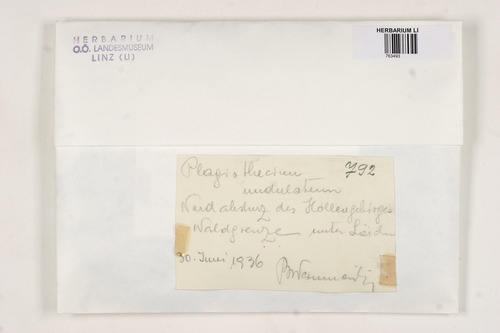 HERBARIUM
O.Ö. LANDESMUSEUM
LINZ (LI)
HERBARIUM LI
763493
Plagiothecium 792
undulatum
Nordabsturz des Höllengebirges
Waldgrenze unter
30. Juni 1936